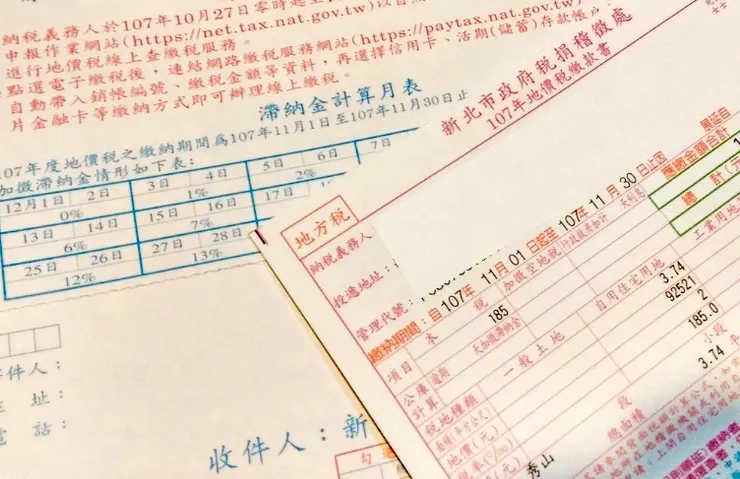 納稅義務人於107年10月27日零時起至1
申報作業網站(https://net.tax.nat.gov.tw)以自
進行地價稅線上查繳稅服務。
點選電子繳稅後，連結網路繳稅服務網站(https://paytax.nat.gov.tw)
自動帶入銷帳編號、繳稅金額等資料，再選擇信用卡、活期(儲蓄)存款帳戶
片金融卡等繳納方式即可辦理線上繳稅。
滯納金計算月表
107年度地價稅之繳納期間為107年11月1日至107年11月30日止
加徵滯納金情形如下表：
12月1日 2日 3日 4日 5日 6日 7日
0% 1% 2%
13日 14日 15日 16日 17日
6% 7%
25日 26日 27日 28日
12% 13%
件人：
址：
電話：
收件人：新
新北市政府稅捐稽徵處
107年地價稅繳款書
地方稅
納稅義務人
投遞地址：
管理代號：
繳納期間：自107年 11月 01日起至 107年 11月 30日止因
展延自
應繳金額合計
總計(元
工業用地
項目 本稅 加徵空地稅 行政救濟加計
185
公庫計算
一般土地 自用住宅用地
稅地種類
3.74
地價(元) 92521
稅率 2
185.0
段 小段
秀山
總面積 3.74